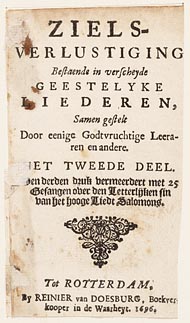 ZIELS-
VERLUSTIGING
Bestaende in verscheyde
GEESTELYKE
LIEDEREN,
Samen gestelt
Door eenige Godtvruchtige Leera-
ren en andere.
HET TWEEDE DEEL.
Den derden druk vermeerdert met 25
Gesangen over den Letterlijken sin
van het hooge Liedt Salomons.
Tot ROTTERDAM,
By REINIER van DOESBURG, Boekver-
kooper in de Waarheyt. 1696.